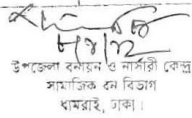 উপজেলা বনায়ন ও নার্সারী কেন্দ্র
সামাজিক বন বিভাগ
ধামরাই, ঢাকা।